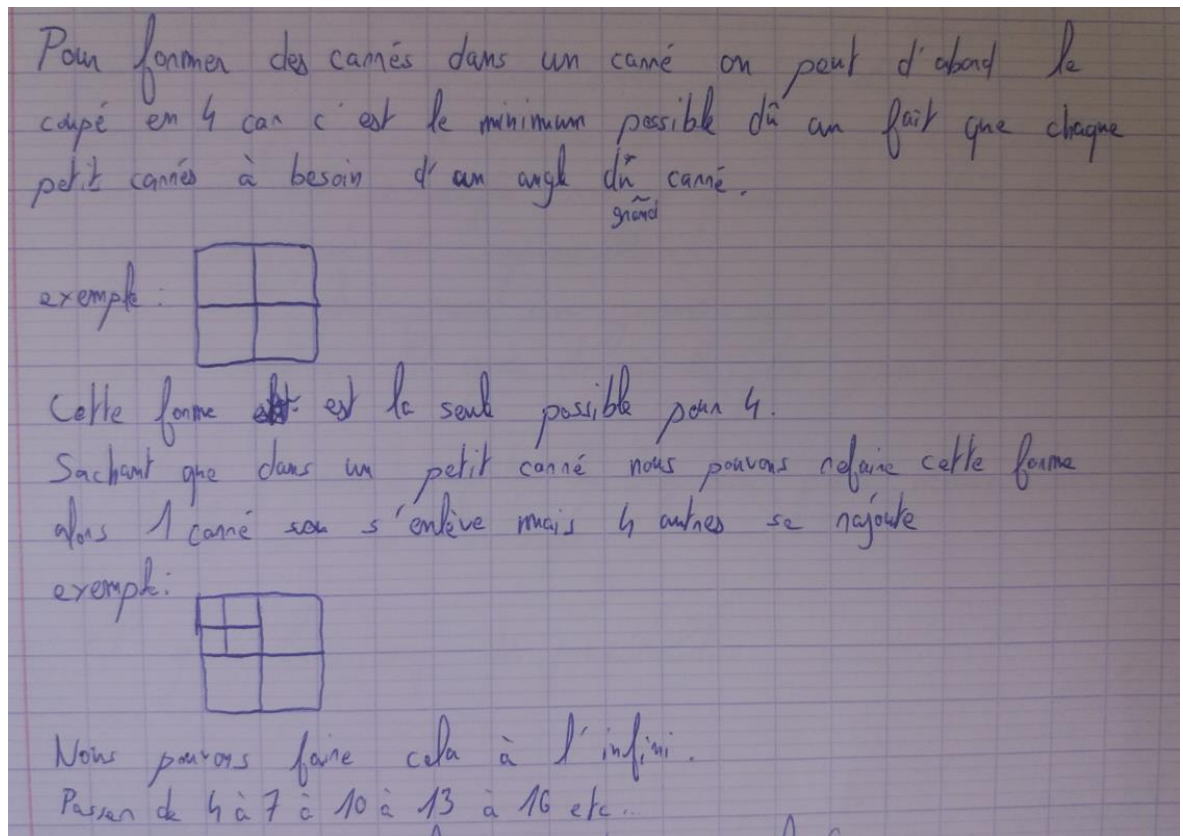 Pour former des carrés dans un carré on peut d'abord le
coupé en 4 car c'est le minimum possible dû au fait que chaque
petit carrés à besoin d'un angle du carré.
grand
exemple :
Cette forme est la seul possible pour 4.
Sachant que dans un petit carré nous pouvons refaire cette forme
alors 1 carré s'enlève mais 4 autres se rajoute
exemple:
Nous pouvons faire cela à l'infini.
Passer de 4 à 7 à 10 à 13 à 16 etc...